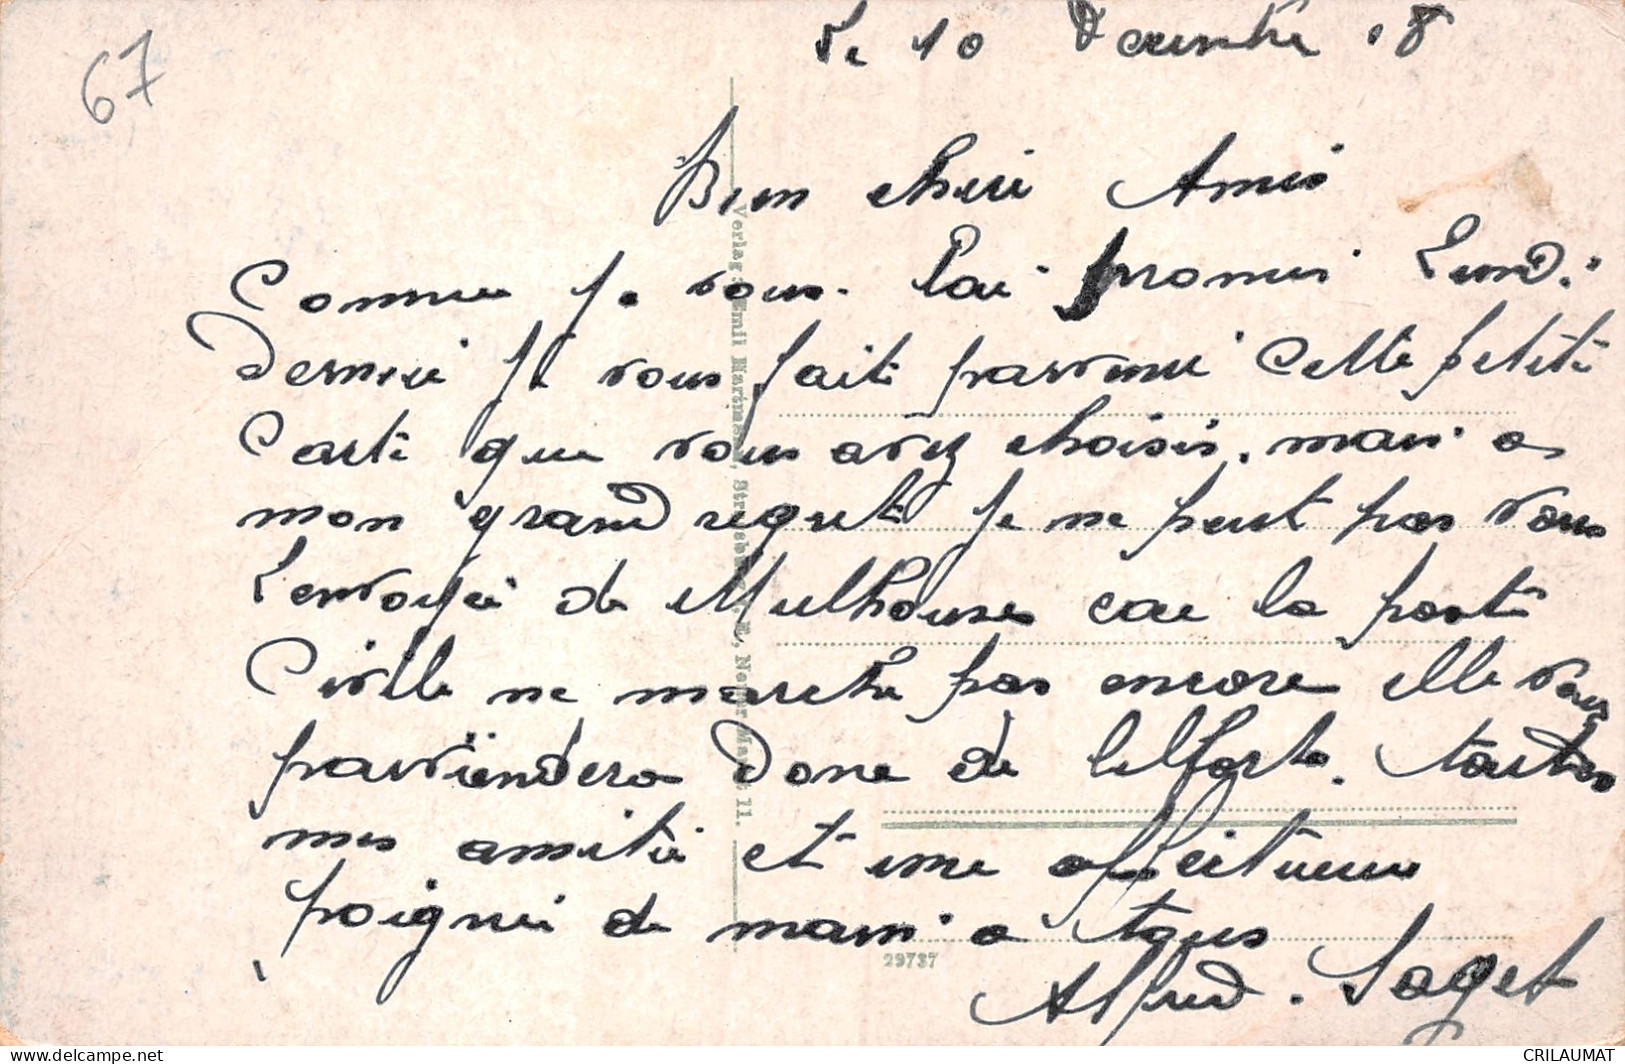 67
Le 10 Decembre 18
Bien cheri Amis
Comme je vous l'ai promis Lundi
Dernier je vous fait parvenir cette petite
carte que vous avez choisis. mais a
mon grand regret je ne peut pas vous
l'envoyer de Mulhouse car la poste
Civile ne marche pas encore elle vous
parviendera donc de Belfort.
mes amitié et une affectueuse
poignée de main a tous
Alfred. Saget
Verlag: Emil Hartmann, Strassburg i. E., Neuer Markt 11.
29737
CRILAUMAT